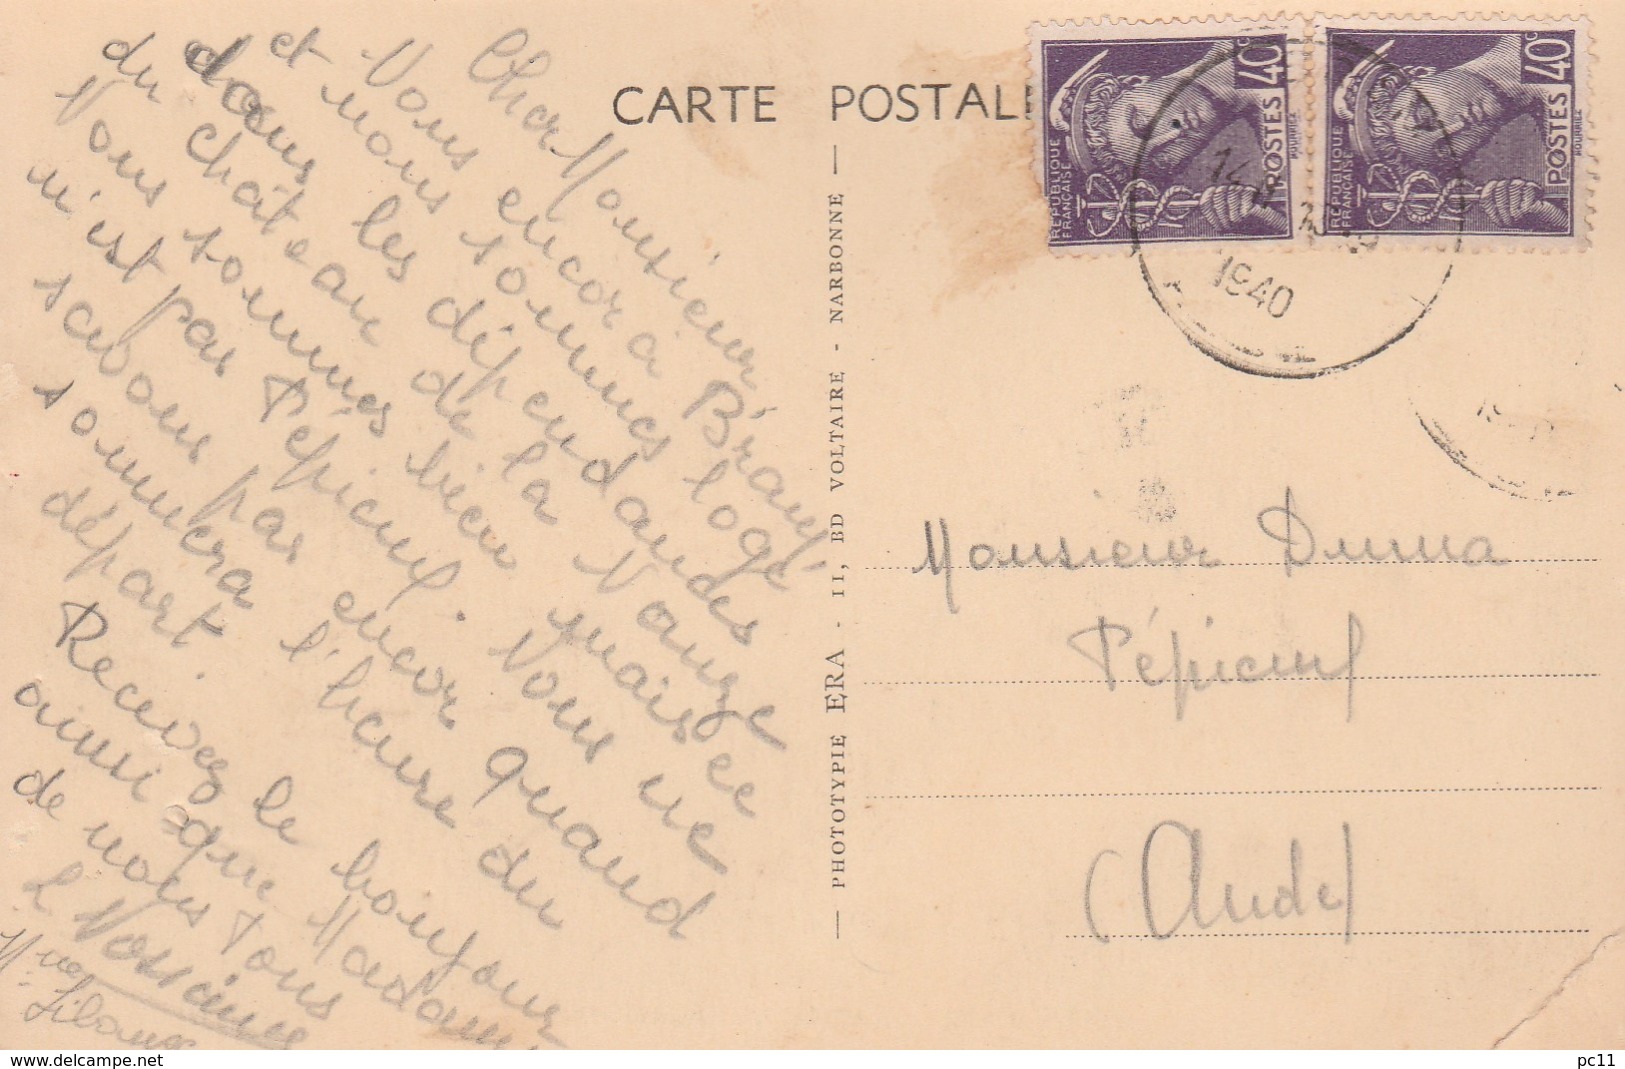 Cher Monsieur
Nous encor a Bram
et nous sommes logé
dans les dépendances
du château de la Nouze
Nous sommes bien mais ce
n'est pas Pépieux. Nous ne
savons pas encor quand
sonnera l'heure du
départ.
Recevez le bonjour
ainsi que Madame
de nous tous
CARTE POSTALE
RÉPUBLIQUE
FRANÇAISE
POSTES
40c
RÉPUBLIQUE
FRANÇAISE
POSTES
40c
1940
— PHOTOTYPIE ERA - 11, BD VOLTAIRE - NARBONNE —
Monsieur Duma
Pépieux
(Aude)
www.delcampe.net
pc11